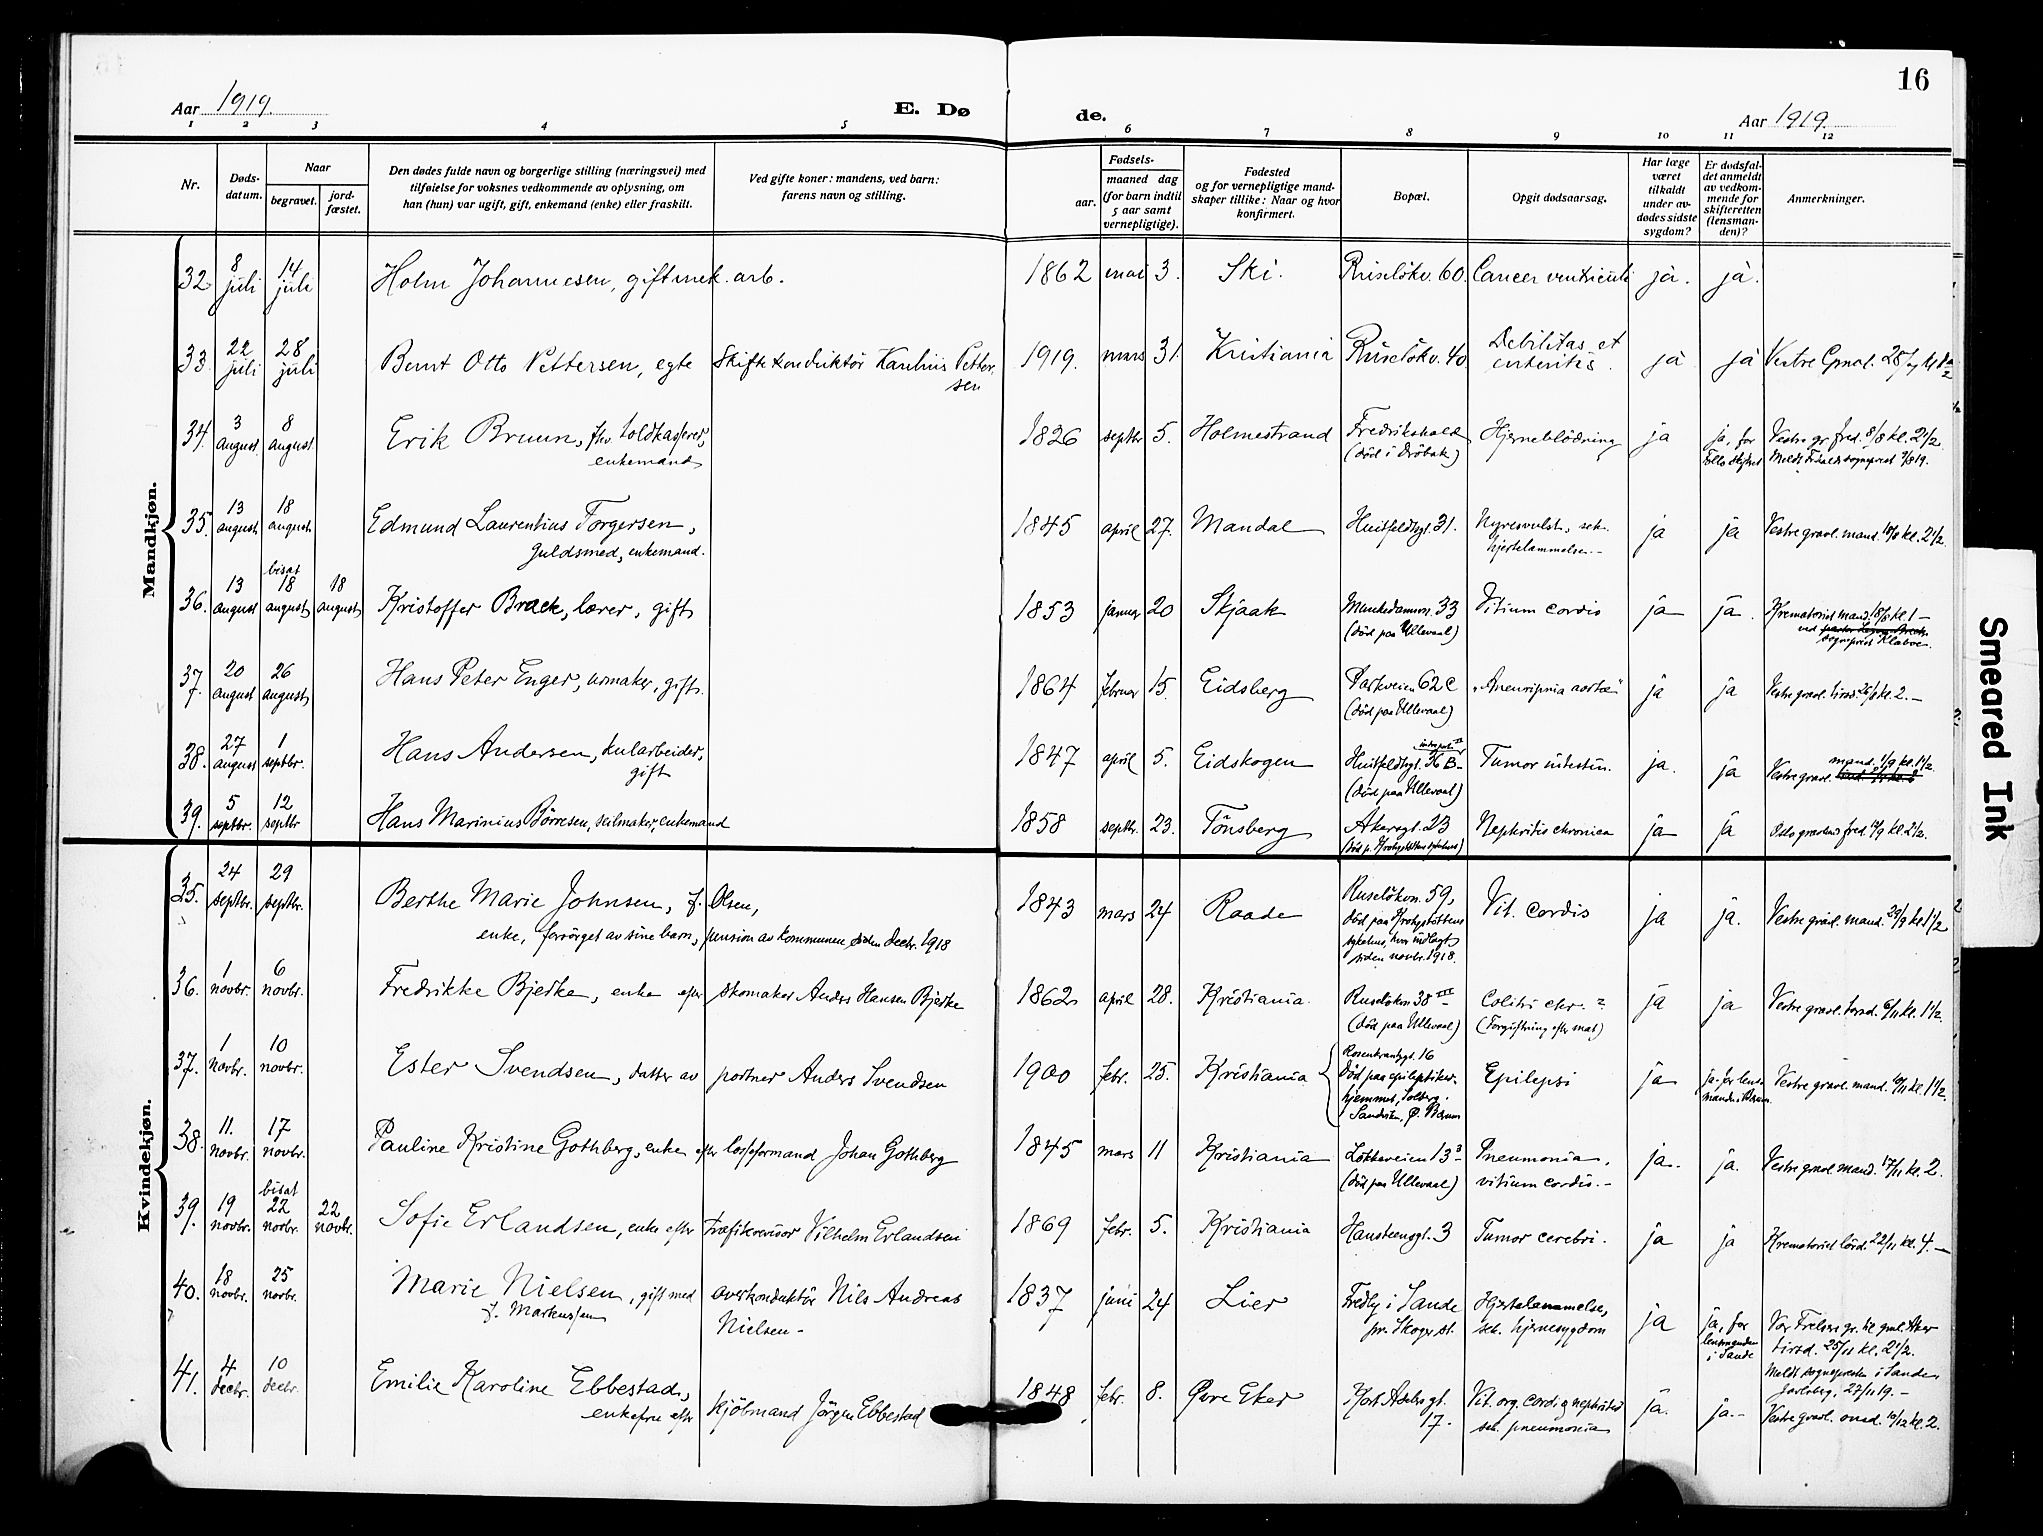 16
Aar 1919. E. Dø de. Aar 1919.
1 2 3 4 5 6 7 8 9 10 11 12
Nr. Døds-datum. Naar begravet. jord-fæstet. Den dødes fulde navn og borgerlige stilling (næringsvei) med tilføielse for voksnes vedkommende av oplysning, om han (hun) var ugift, gift, enkemand (enke) eller fraskilt. Ved gifte koner: mandens, ved barn: farens navn og stilling. Fødsels- aar. maaned dag (for barn indtil 5 aar samt vernepligtige). Fødested og for vernepligtige mand-skaper tillike: Naar og hvor konfirmert. Bopæl. Opgit dødsaarsag. Har læge været tilkaldt under av-dødes sidste sygdom? Er dødsfal-det anmeldt av vedkom-mende for skifteretten (lensman-den)? Anmerkninger.
Mandkjøn.
32 8 juli 14 juli Holm Johannesen, gift mek. arb. 1862 mai 3. Ski. Ruseløkv. 60. Cancer ventriculi ja. ja.
33. 22 juli 28 juli Bernt Otto Pettersen, egte Skiftekonduktør Pettersen 1919. mars 31. Kristiania Ruseløkv. 40 Debilitas et enteritis. ja ja Vestre
34. 3 august 8 august Erik Bruun, fhv. toldkasserer, enkemand 1826 septbr 5. Holmestrand Fredrikshald (död i Dröbak) Hjerneblödning ja ja, for Vestre gr. fred. 8/8 kl. 2 1/2.
35. 13 august 18 august Edmund Laurentius Torgersen, Guldsmed, enkemand. 1845 april 27. Mandal Huitfeldtsgt. 31. Nyresvulst, sek. hjertelammelse.- ja ja Vestre gravl. mand. 18/8 kl. 2 1/2.
36. 13 august bisat 18 august 18 august Kristoffer Bræck, lærer, gift 1853 januar 20 Skjaak Munkedamsv. 33 (död paa Ullevaal) Vitium cordis ja ja. Krematoriet mand. 18/8 kl. 1 - ved sogneprest
37. 20 august 26 august Hans Peter Enger, urmaker, gift. 1864 februar 15. Eidsberg Parkveien 62 C (död paa Ullevaal) "Aneurisma aortæ" ja ja Vestre gravl. tirsd. 26/8 kl. 2. -
38. 27 august 1 septbr. Hans Andersen, kularbeider, gift 1847 april 5. Eidskogen Huitfeldtsgt. B- (död paa Ullevaal) Tumor intestin. ja. ja Vestre gravl. mand. 1/9 kl. 1 1/2.
39. 5 septbr. 12 septbr Hans Marinius Børresen, seilmaker, enkemand 1858 septbr. 23. Tönsberg Akersgt. 23 Nephritis chronica ja ja Oslo gravlund fred. 12/9 kl. 2 1/2.
Kvindekjøn.
35. 24 septbr. 29 septbr. Berthe Marie Johnsen, f. Olsen, enke, forsörget av sine barn, pension av kommunen siden decbr. 1918 1843 mars 24 Raade Ruseløkvn. 59, död paa Krohgstöttens sykehus, hvor indlagt siden novbr. 1918. Vit. cordis ja ja. Vestre gravl. mand. 29/9 kl. 1 1/2
36. 1 novbr. 6 novbr. Fredrikke Bjerke, enke efter skomaker Anders Hansen Bjerke 1862 april 28. Kristiania. Ruseløkvn 38 III (död paa Ullevaal) Coliti chr. ? (Forgiftning efter mat) ja ja Vestre gravl. torsd. 6/11 kl. 1 1/2.
37. 1 novbr. 10 novbr. Ester Svendsen, datter av portner Anders Svendsen 1900 febr. 25. Kristiania Rosenkrantzgt. 16 död paa epileptiker-hjemmet, Solberg, Sandviken, Ø. Bærum Epilepsi ja ja for lens-manden i Bærum Vestre gravl. mand. 10/11 kl. 1 1/2.
38. 11. novbr. 17 novbr. Pauline Kristine Gothberg, enke efter losseformand Johan Gothberg 1845 mars 11 Kristiania Lökkeveien 13 3 (död paa Ullevaal) Pneumonia, vitium cordis.- ja. ja. Vestre gravl. mand. 17/11 kl. 2.
39. 19 novbr. bisat 22 novbr. 22 novbr. Sofie Erlandsen, enke efter trafikrevisor Vilhelm Erlandsen 1869 febr. 5. Kristiania Hansteensgt. 3 Tumor cerebri. ja ja Krematoriet lörd. 22/11 kl. 4. -
40. 18 novbr. 25 novbr. Marie Nielsen, gift med f. Markussen overkonduktör Nils Andreas Nielsen- 1837 juni 24 Lier Fredly i Sande pr. Skoger st. Hjertelammelse, sek. hjernesygdom ja ja, for lensmanden i Sande Vor Frelsers gr. kl. gml. Aker tirsd. 25/11 kl. 2 1/2. Meldt sognepresten i Sande, Jarlsberg, 27/11 19. -
41. 4 decbr. 10 decbr. Emilie Karoline Ebbestad, enkefrue efter kjöbmand Jörgen Ebbestad 1848 febr. 8. Øvre Eker Kort Adelersgt. 17. Vit. org. cordis, nephritis sek. pneumonia ja. ja.- Vestre gravl. onsd. 10/12 kl. 2.
Smeared Ink